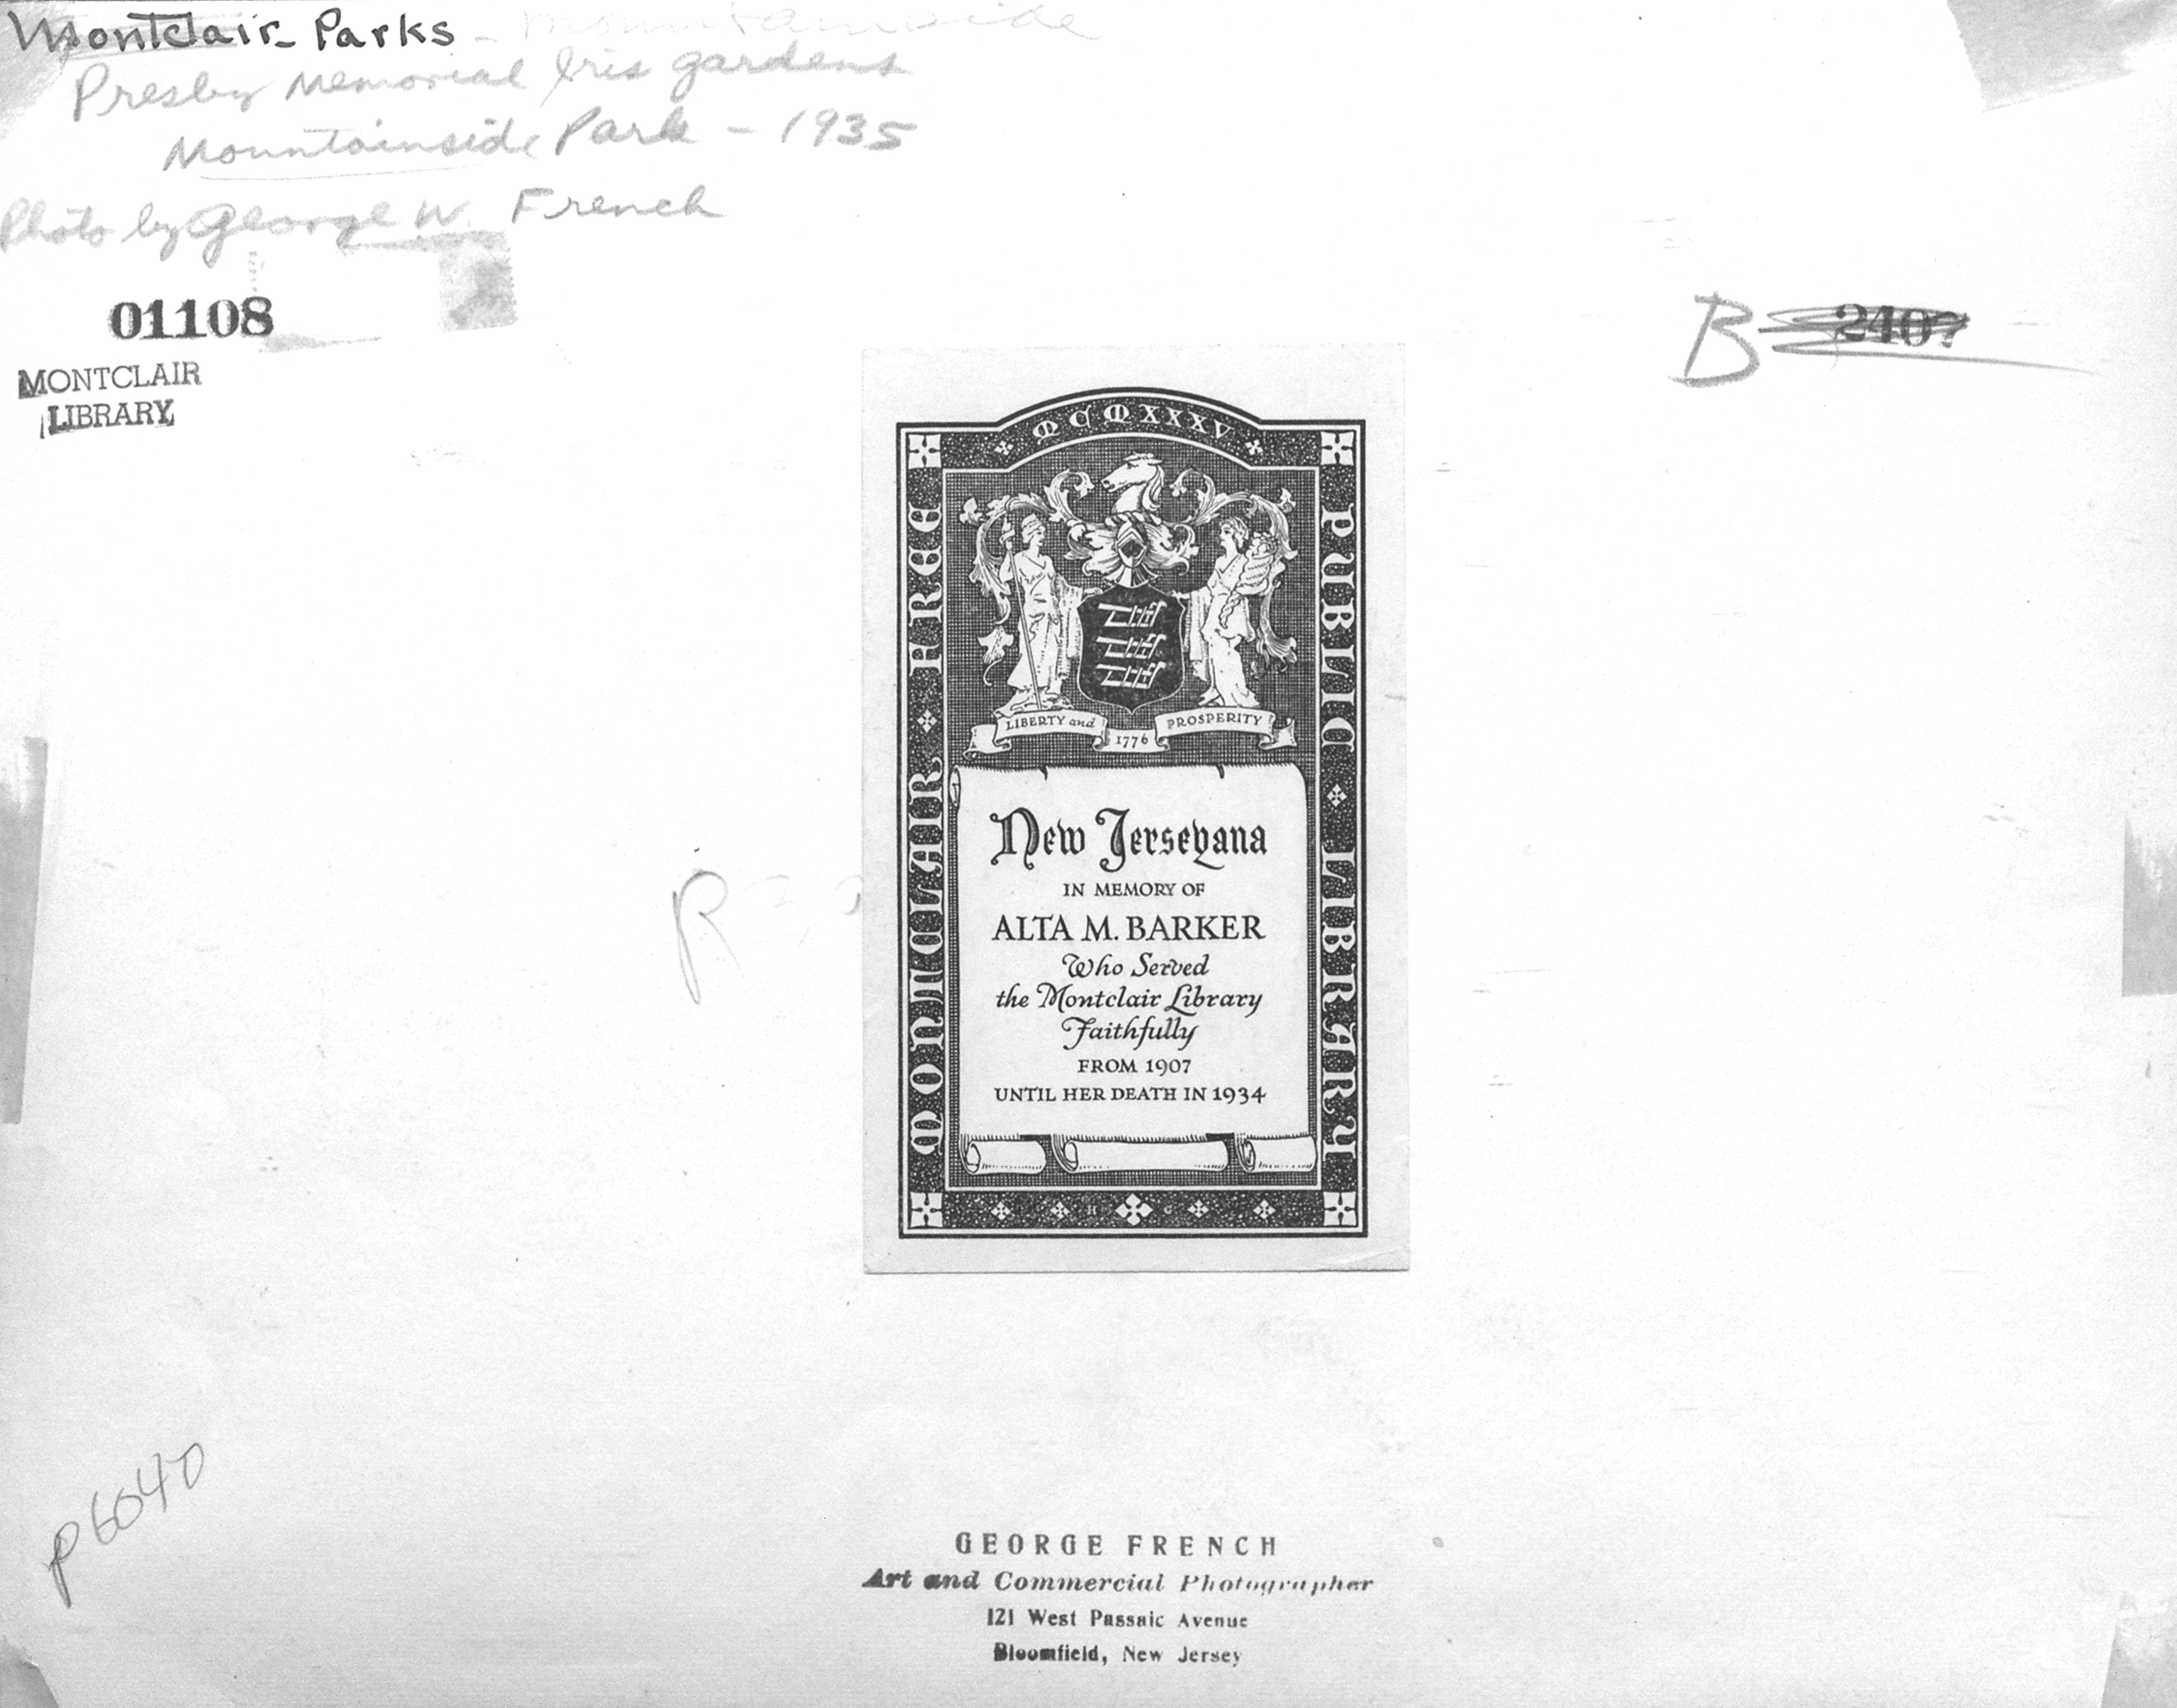 Montclair - Parks - Mountainside
Presby Memorial Iris gardens
Mountainside Park - 1935
Photo by George W. French
01108
MONTCLAIR
LIBRARY
B
240?
MCMXXXV
MONTCLAIR FREE
PUBLIC LIBRARY
LIBERTY and PROSPERITY
1776
New Jerseyana
IN MEMORY OF
ALTA M. BARKER
Who Served
the Montclair Library
Faithfully
FROM 1907
UNTIL HER DEATH IN 1934
H G
P6040
GEORGE FRENCH
Art and Commercial Photographer
121 West Passaic Avenue
Bloomfield, New Jersey